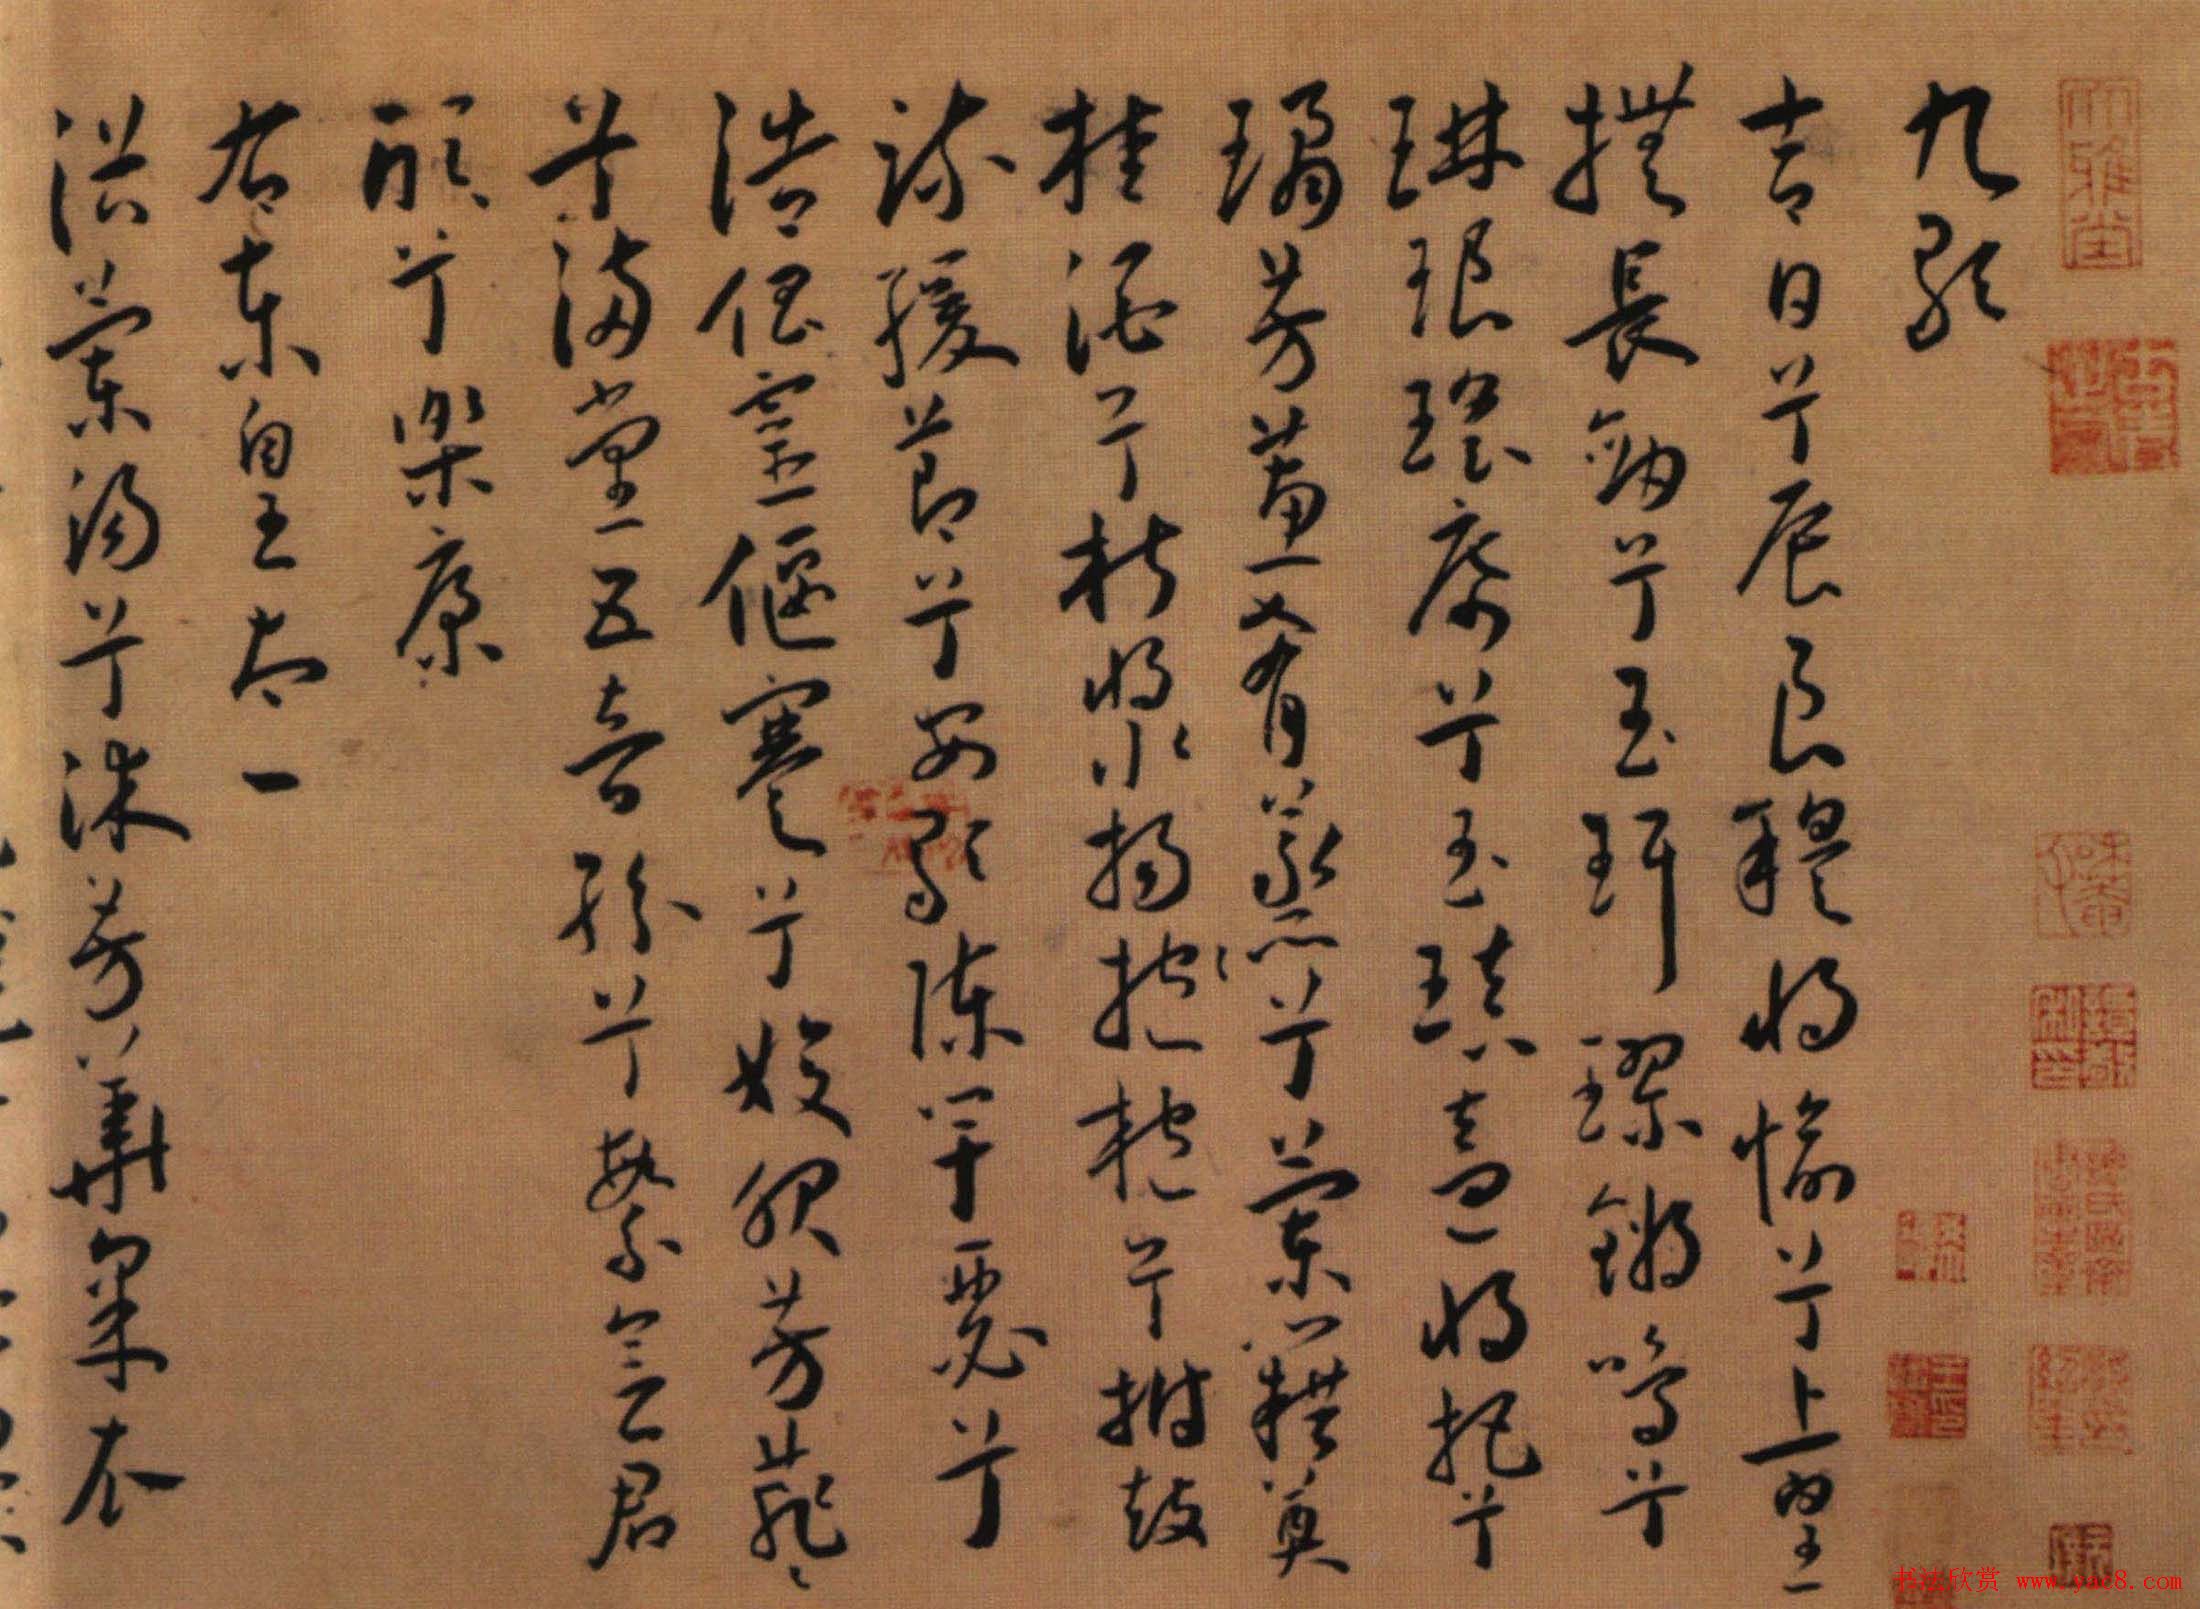 大雅堂
九歌
吉日兮辰良穆将愉兮上皇
撫長劍兮玉珥璆鏘鳴兮
琳琅瑤席兮玉瑱盍将把兮
瓊芳蕙肴蒸兮蘭藉奠
桂酒兮椒漿揚抱枹兮拊鼓
疏緩節兮安歌陳竽瑟兮
浩倡靈偃蹇兮姣服芳菲〻
兮滿堂五音紛兮繁會君
欣〻兮樂康
右東皇太一
浴蘭湯兮沐芳華采衣
书法欣赏 www.yac8.com